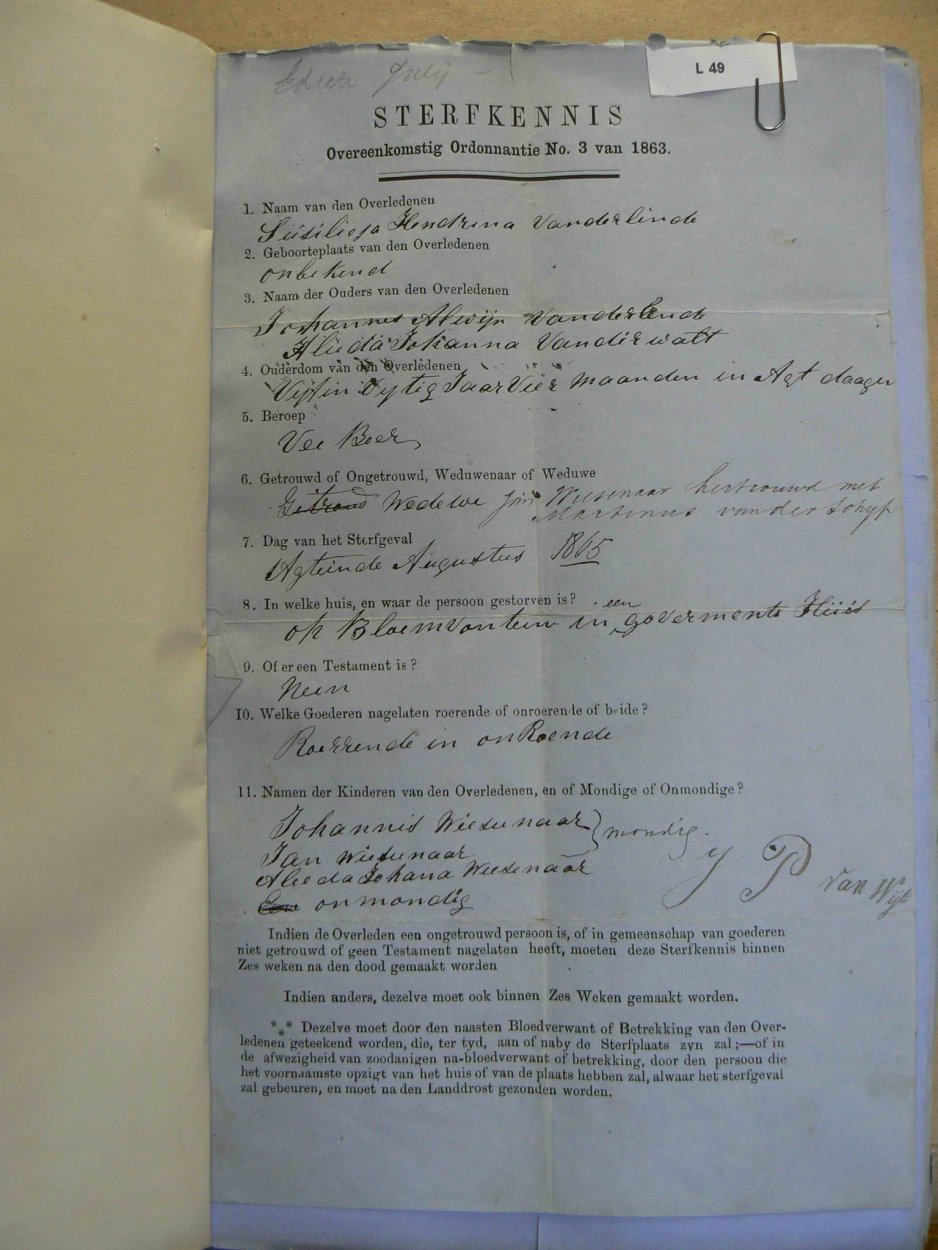 L 49
STERFKENNIS
Overeenkomstig Ordonnantie No. 3 van 1863.
1. Naam van den Overledenen
Hendrina Vanderlinde
2. Geboorteplaats van den Overledenen
onbekend
3. Naam der Ouders van den Overledenen
Johannes Alewijn Vanderlinde
Alieda Johanna Vanderwalt
4. Ouderdom van den Overledenen
Jaar Vier maanden in Agt daagen
5. Beroep
Vee Boer
6. Getrouwd of Ongetrouwd, Weduwenaar of Weduwe
Wedewe Jan Wiesenaar hertrouwd met
Martinus van der Schyf
7. Dag van het Sterfgeval
Agteinde Augustus 1865
8. In welke huis, en waar de persoon gestorven is?
op Bloemvontein in een goverments Huis
9. Of er een Testament is?
Neen
10. Welke Goederen nagelaten roerende of onroerende of beide?
Roerrende in onRoende
11. Namen der Kinderen van den Overledenen, en of Mondige of Onmondige?
Johannis Wiesenaar } mondig.
Jan Wiesenaar
Alieda Johana Wiesenaar
onmondig
J P van Wijk
Indien de Overleden een ongetrouwd persoon is, of in gemeenschap van goederen
niet getrouwd of geen Testament nagelaten heeft, moeten deze Sterfkennis binnen
Zes weken na den dood gemaakt worden
Indien anders, dezelve moet ook binnen Zes Weken gemaakt worden.
*** Dezelve moet door den naasten Bloedverwant of Betrekking van den Over-
ledenen geteekend worden, die, ter tyd, aan of naby de Sterfplaats zyn zal;—of in
de afwezigheid van zoodanigen na-bloedverwant of betrekking, door den persoon die
het voornaamste opzigt van het huis of van de plaats hebben zal, alwaar het sterfgeval
zal gebeuren, en moet na den Landdrost gezonden worden.